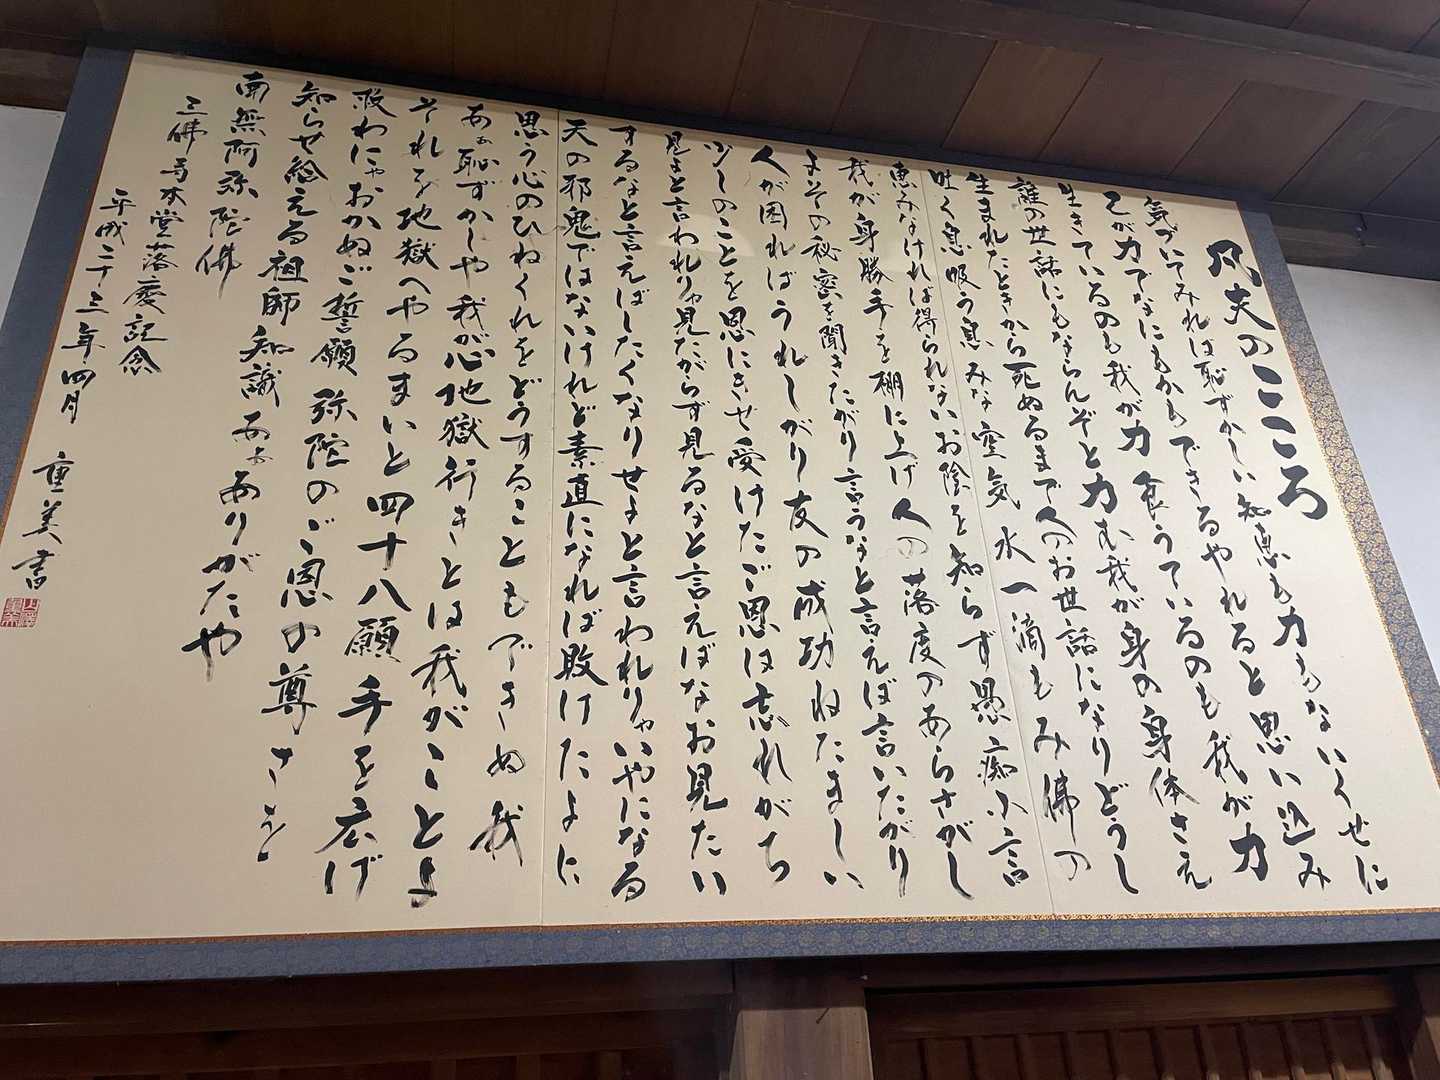 凡夫のこころ
気づいてみれば恥ずかしい知恵も力もないくせに
己が力でなにもかもできるやれると思い込み
生きているのも我が力食うているのも我が力
誰の世話にもならんぞと力む我が身の身体さえ
生まれたときから死ぬるまで人のお世話になりどうし
吐く息吸う息みな空気水一滴もみ佛の
恵みなければ得られないお陰を知らず愚痴小言
我が身勝手を棚に上げ人の落度のあらさがし
よその秘密を聞きたがり言うなと言えば言いたがり
人が困ればうれしがり友の成功ねたましい
少しのことを恩にきせ受けたご恩は忘れがち
見よと言われりゃ見たがらず見るなと言えばなお見たい
するなと言えばしたくなりせよと言われりゃいやになる
天の邪鬼ではないけれど素直になれば敗けたよに
思う心のひねくれをどうすることもできぬ我
あゝ恥ずかしや我が心地獄行きとは我がことよ
それを地獄へやるまいと四十八願手を広げ
救わにゃおかぬご誓願弥陀のご恩の尊さを
知らせ給える祖師知識あゝありがたや
南無阿弥陀佛
三佛寺本堂落慶記念
平成二十三年四月 重美書